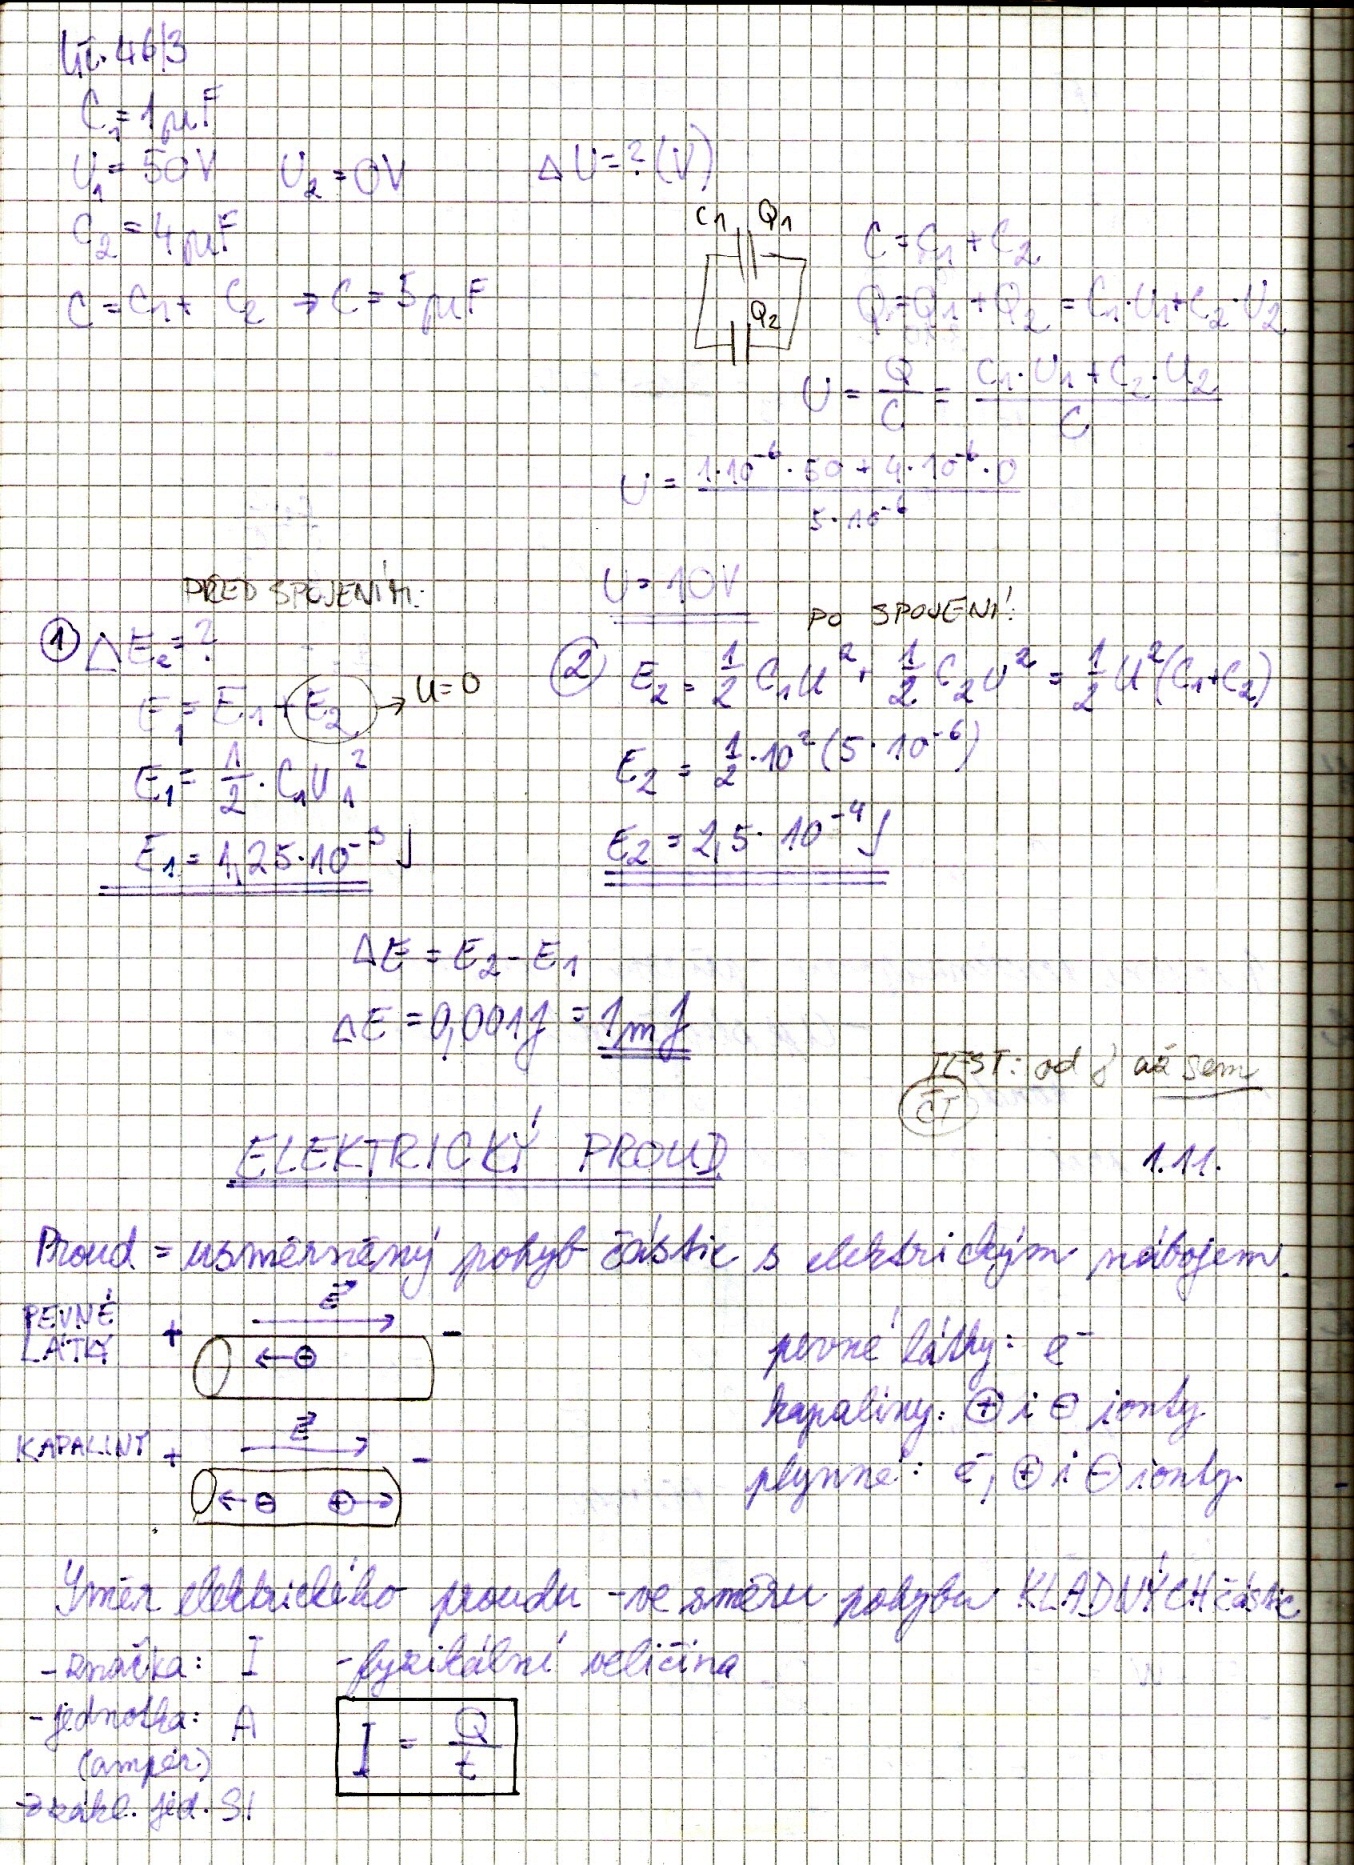 Uč. 46/3
C₁ = 1μF
U₁ = 50V U₂ = 0V ΔU = ? (V)
C₂ = 4μF
C = C₁ + C₂ ⇒ C = 5μF
C₁ Q₁
Q₂
C = C₁ + C₂
Q = Q₁ + Q₂ = C₁·U₁ + C₂·U₂
U = Q/C = (C₁·U₁ + C₂·U₂)/C
U = (1·10⁻⁶·50 + 4·10⁻⁶·0)/(5·10⁻⁶)
U = 10V
PŘED SPOJENÍM:
① ΔEₑ = ?
E₁ = E₁ + E₂ → U=0
E₁ = 1/2 · C₁U₁²
E₁ = 1,25·10⁻³ J
PO SPOJENÍ:
② E₂ = 1/2 C₁U² + 1/2 C₂U² = 1/2 U²(C₁+C₂)
E₂ = 1/2 · 10² (5·10⁻⁶)
E₂ = 2,5·10⁻⁴ J
ΔE = E₂ - E₁
ΔE = 0,001J = 1mJ
TEST: od až sem
ČT
ELEKTRICKÝ PROUD 1.11.
Proud = usměrněný pohyb částic s elektrickým nábojem.
PEVNÉ LÁTKY + E⃗ -
⊖
KAPALINY + E⃗ -
⊖ ⊕
pevné látky: e⁻
kapaliny: ⊕ i ⊖ ionty
plynné: e⁻, ⊕ i ⊖ ionty
Směr elektrického proudu - ve směru pohybu KLADNÝCH částic
- značka: I - fyzikální veličina
- jednotka: A
(ampér)
→ zákl. jed. SI
I = Q/t